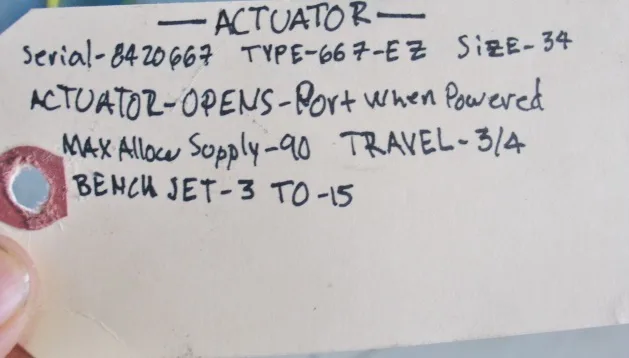 — ACTUATOR —
Serial-8420667 TYPE-667-EZ SIZE-34
ACTUATOR-OPENS-Port when Powered
MAX Allow Supply-90 TRAVEL-3/4
BENCH JET-3 TO-15